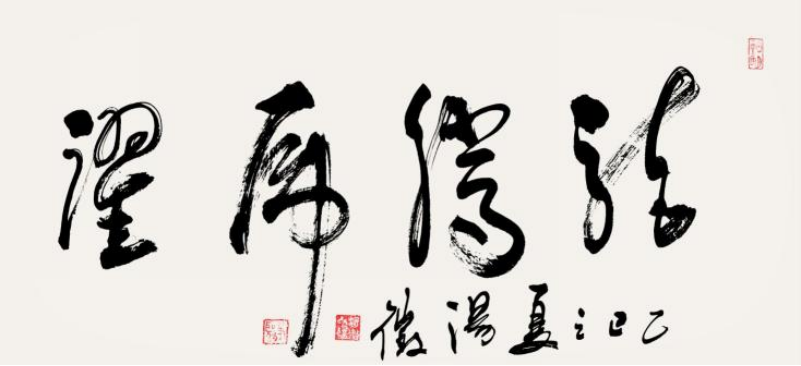 龍騰虎躍
乙巳之夏湯